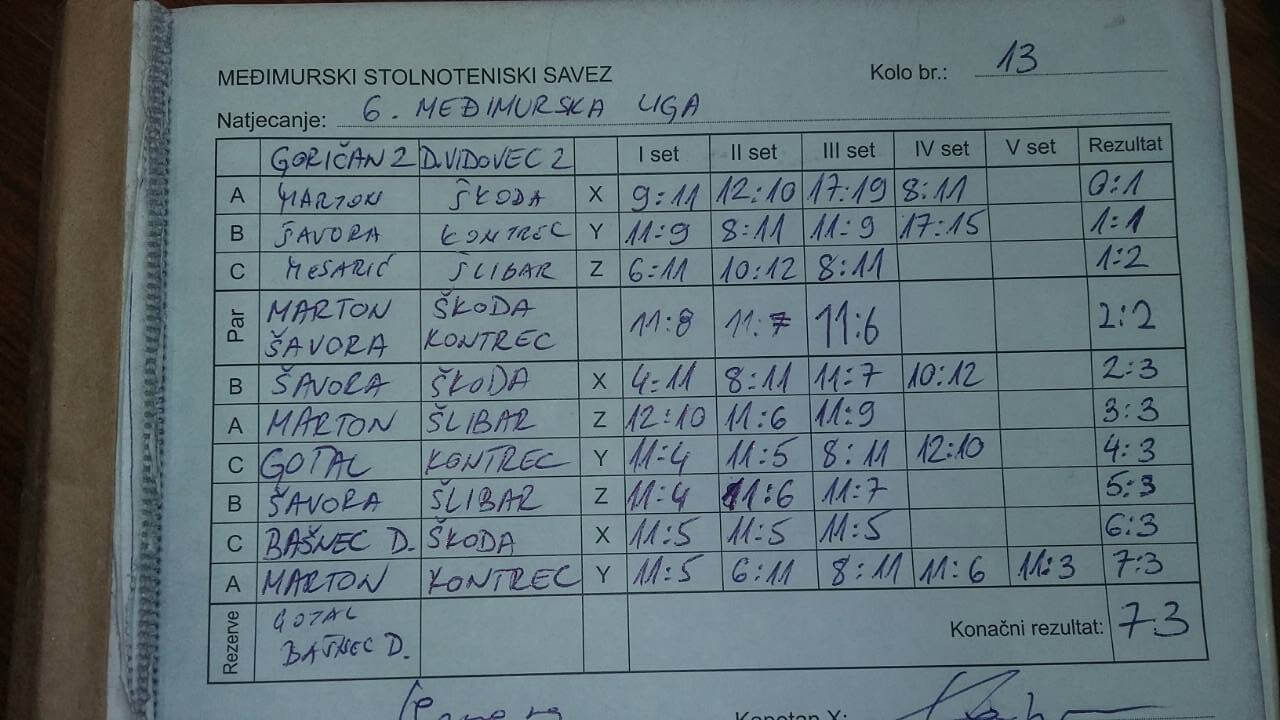 MEĐIMURSKI STOLNOTENISKI SAVEZ Kolo br.: 13
Natjecanje: 6. MEĐIMURSKA LIGA
GORIČAN 2 D.VIDOVEC 2 I set II set III set IV set V set Rezultat
A MARTON ŠKODA X 9:11 12:10 17:19 8:11 0:1
B ŠAVORA KONTREC Y 11:9 8:11 11:9 17:15 1:1
C MESARIĆ ŠLIBAR Z 6:11 10:12 8:11 1:2
Par MARTON ŠKODA 11:8 11:7 11:6 2:2
ŠAVORA KONTREC
B ŠAVORA ŠKODA X 4:11 8:11 11:7 10:12 2:3
A MARTON ŠLIBAR Z 12:10 11:6 11:9 3:3
C GOTAL KONTREC Y 11:4 11:5 8:11 12:10 4:3
B ŠAVORA ŠLIBAR Z 11:4 11:6 11:7 5:3
C BAŠNEC D. ŠKODA X 11:5 11:5 11:5 6:3
A MARTON KONTREC Y 11:5 6:11 8:11 11:6 11:3 7:3
Rezerve GOTAL Konačni rezultat: 7:3
BAŠNEC D.